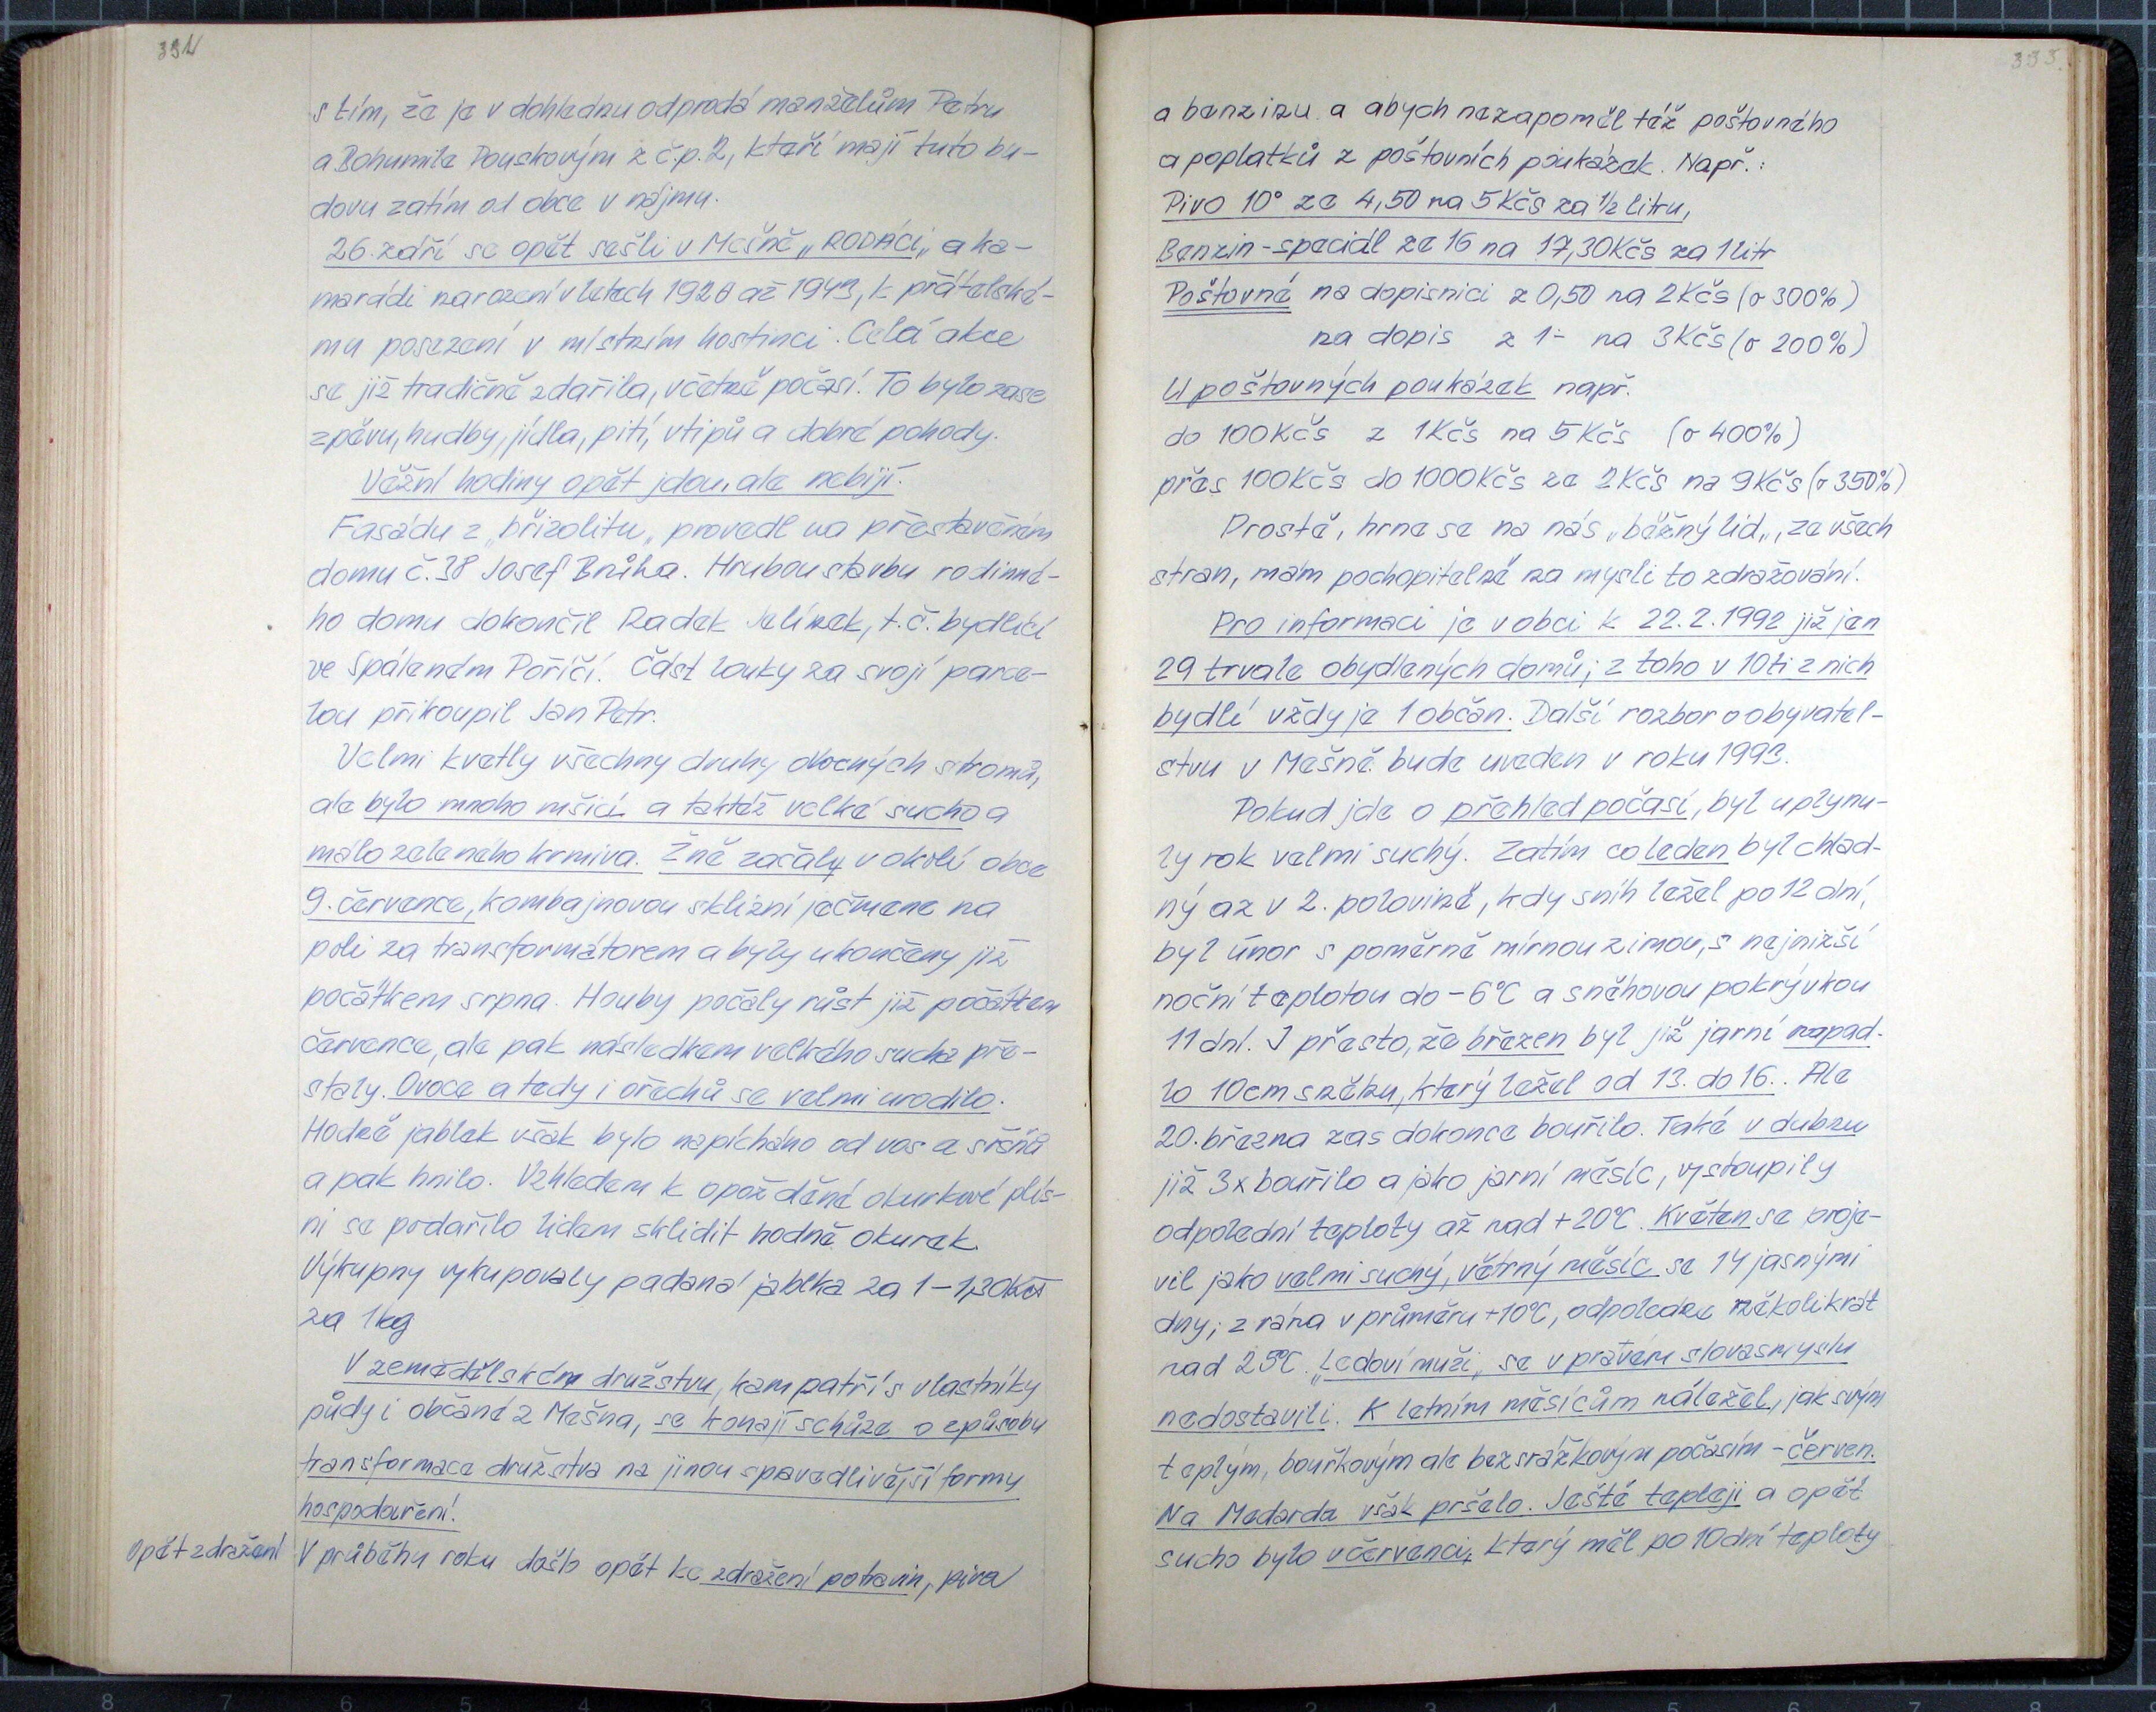 s tím, že je v dohlednu odprodá manželům Petru
a Bohumile Pouskovým z č.p. 2, kteří mají tuto bu-
dovu zatím od obce v nájmu.
26. září se opět sešli v Mešně „RODÁCI„ a ka-
marádi narození v letech 1928 až 1943, k přátelské-
mu posezení v místním hostinci. Celá akce
se již tradičně zdařila, včetně počasí. To bylo zase
zpěvu, hudby, jídla, pití, vtipů a dobré pohody.
Věžní hodiny opět jdou, ale nebijí.
Fasádu z „břizolitu„ provedl na přestavěném
domu č. 38 Josef Brůha. Hrubou stavbu rodinné-
ho domu dokončil Radek Jelínek, t.č. bydlící
ve Spáleném Poříčí. Část louky za svojí parce-
lou přikoupil Jan Petr.
Velmi kvetly všechny druhy ovocných stromů,
ale bylo mnoho mšicí a taktéž velké sucho a
málo zeleného krmiva. Žně začaly v okolí obce
9. července, kombajnovou sklizní ječmene na
poli za transformátorem a byly ukončeny již
počátkem srpna. Houby počaly růst již počátkem
července, ale pak následkem velkého sucha pře-
staly. Ovoce a tedy i ořechů se velmi urodilo.
Hodně jablek však bylo napícháno od vos a sršňů
a pak hnilo. Vzhledem k opožděné okurkové plís-
ni se podařilo lidem sklidit hodně okurek.
Výkupny vykupovaly padaná jablka za 1-1,30 Kčs
za 1 kg
V zemědělském družstvu, kam patří s vlastníky
půdy i občané z Mešna, se konají schůze o způsobu
transformace družstva na jinou spravedlivější formy
hospodaření.
Opět zdražení V průběhu roku došlo opět ke zdražení potravin, piva
333.
a benzinu a abych nezapoměl též poštovného
a poplatků z poštovních poukázek. Např.:
Pivo 10° ze 4,50 na 5 Kčs za 1/2 litru,
Benzin-speciál ze 16 na 17,30 Kčs za 1 litr
Poštovné na dopisnici z 0,50 na 2 Kčs (o 300%)
na dopis z 1- na 3 Kčs (o 200%)
U poštovných poukázek např.
do 100 Kčs z 1 Kčs na 5 Kčs (o 400%)
přes 100 Kčs do 1000 Kčs ze 2 Kčs na 9 Kčs (o 350%)
Prostě, hrne se na nás „běžný lid„, ze všech
stran, mám pochopitelně na mysli to zdražování.
Pro informaci je v obci k 22.2.1992 již jen
29 trvale obydlených domů; z toho v 10ti z nich
bydlí vždy je 1 občan. Další rozbor o obyvatel-
stvu v Mešně bude uveden v roku 1993.
Pokud jde o přehled počasí, byl uplynu-
lý rok velmi suchý. Zatím co leden byl chlad-
ný az v 2. polovině, kdy sníh ležel po 12 dní,
byl únor s poměrně mírnou zimou, s nejnižší
noční teplotou do -6°C a sněhovou pokrývkou
11 dní. I přesto, že březen byl již jarní napad-
lo 10 cm sněhu, který ležel od 13. do 16.. Ale
20. března zas dokonce bouřilo. Také v dubnu
již 3x bouřilo a jako jarní měsíc, vystoupily
odpolední teploty až nad +20°C. Květen se proje-
vil jako velmi suchý, větrný měsíc se 14 jasnými
dny; z rána v průměru +10°C, odpoledne několikrát
nad 25°C. „Ledoví muži„ se v pravém slova smyslu
nedostavili. K letním měsícům náležel, jak svým
teplým, bouřkovým ale bezsrážkovým počasím - červen.
Na Medarda však pršelo. Ještě tepleji a opět
sucho bylo v červenci, který měl po 10 dní teploty